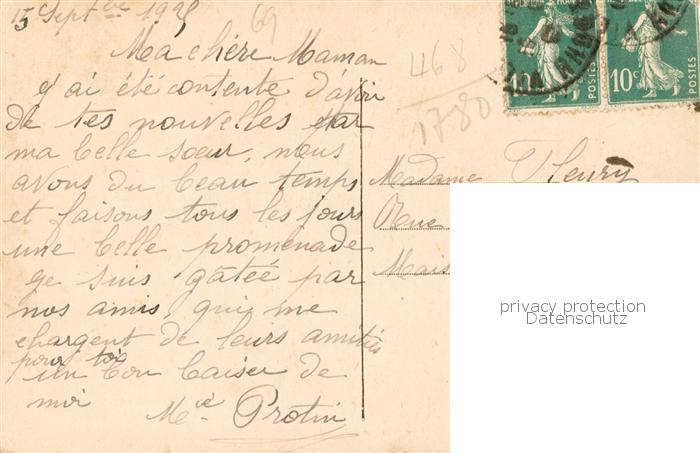 15 Septbre 192
69
Ma chère Maman
j'ai été contente d'avoir
de tes nouvelles par
ma belle sœur, nous
avons du beau temps
et faisons tous les jours
une belle promenade
je suis gâtée par
nos amis, qui me
chargent de leurs amitiés
pour toi
un bon baiser de
moi
Mie Protin
468
1780
10c POSTES
10c POSTES
Madame Fleury
Rue
Mais
privacy protection
Datenschutz